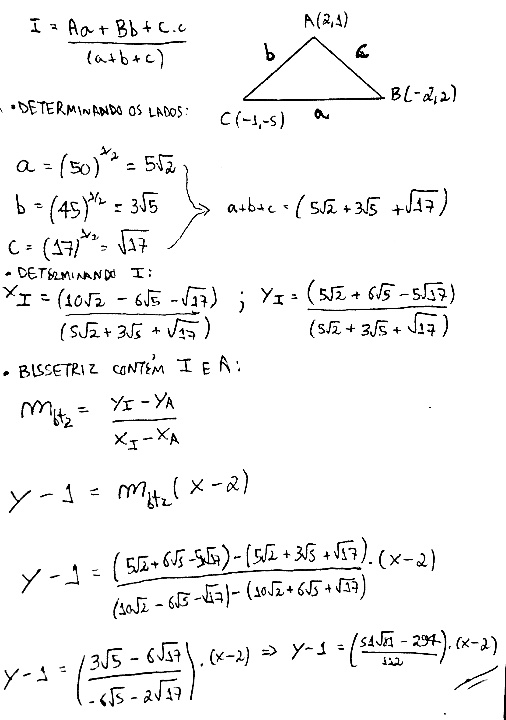 I = Aa + Bb + C.c / (a+b+c)
A(2,1)
b c
B(-2,2)
C(-1,-5) a
• DETERMINANDO OS LADOS:
a = (50)^1/2 = 5√2
b = (45)^1/2 = 3√5 → a+b+c = (5√2 + 3√5 + √17)
c = (17)^1/2 = √17
• DETERMINANDO I:
X_I = (10√2 - 6√5 - √17) / (5√2 + 3√5 + √17) ; Y_I = (5√2 + 6√5 - 5√17) / (5√2 + 3√5 + √17)
• BISSETRIZ CONTÉM I E A:
m_btz = Y_I - Y_A / X_I - X_A
y - 1 = m_btz (x - 2)
y - 1 = (5√2 + 6√5 - 5√17) - (5√2 + 3√5 + √17) / (10√2 - 6√5 - √17) - (10√2 + 6√5 + √17) . (x - 2)
y - 1 = (3√5 - 6√17 / -6√5 - 2√17) . (x-2) ⇒ y - 1 = ( / 112) . (x-2)